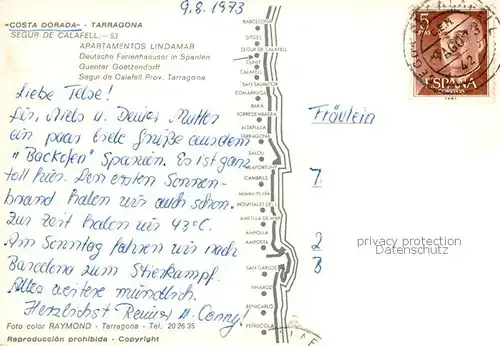 9.8.1973
«COSTA DORADA» - TARRAGONA
SEGUR DE CALAFELL.—53
APARTAMENTOS LINDAMAR
Deutsche Ferienhaeuser in Spanien
Guenter Goetzendorff
Segur de Calafell. Prov. Tarragona
Liebe Telse!
Dir, Niels u. Deiner Mutter
ein paar liebe Grüße aus dem
"Backofen" Spanien. Es ist ganz
toll hier. Den ersten Sonnen-
brand haben wir auch schon.
Zur Zeit haben wir 43°C.
Am Sonntag fahren wir nach
Barcelona zum Stierkampf.
Alles weitere mündlich.
Herzlichst Conny!
Foto color RAYMOND - Tarragona - Tel. 20 26 35
Reproducción prohibida - Copyright
BARCELONA
SITGES
SEGUR DE CALAFELL
CUNIT
CALAFELL
SAN SALVADOR
COMARRUGA
BARA
TORREDEMBARRA
ALTAFULLA
TARRAGONA
SALOU
VILAFORTUNY
CAMBRILS
MIAMI PLAYA
HOSPITALET
AMETLLA DE MAR
AMPOLLA
AMPOSTA
SAN CARLOS
VINAROZ
BENICARLO
PEÑISCOLA
5
PTAS
ESPAÑA
CORREOS
AGO 73
Fräulein
7
2
B
privacy protection
Datenschutz